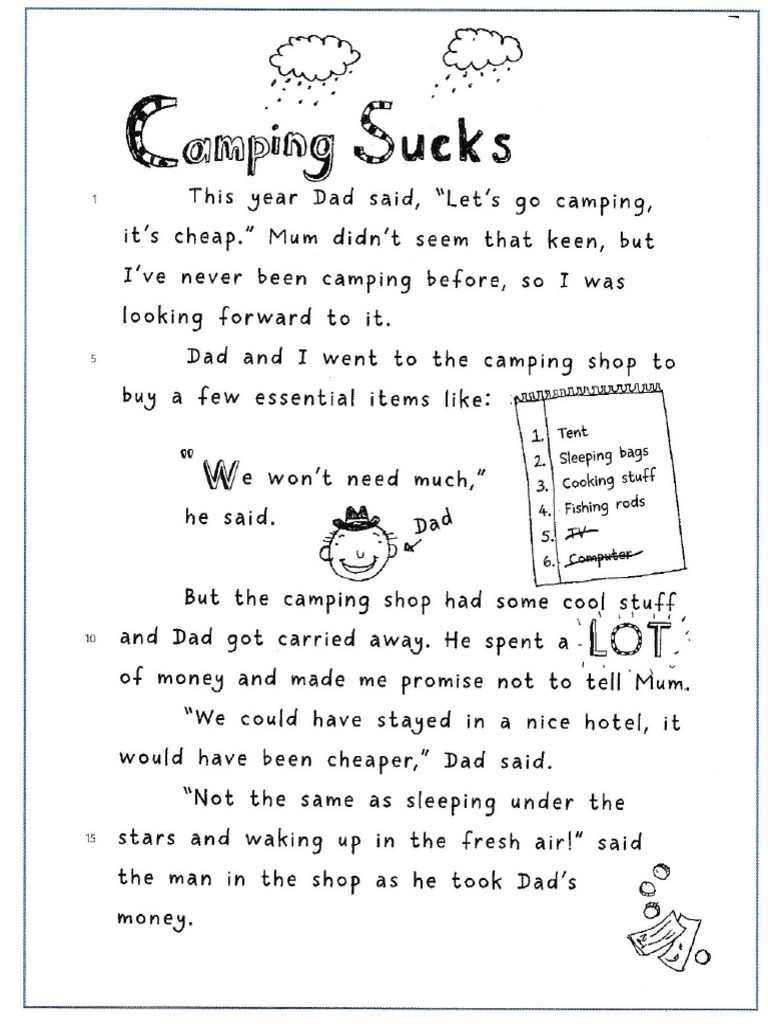 Camping Sucks
1 This year Dad said, "Let's go camping,
it's cheap." Mum didn't seem that keen, but
I've never been camping before, so I was
looking forward to it.
5 Dad and I went to the camping shop to
buy a few essential items like:
1. Tent
2. Sleeping bags
3. Cooking stuff
4. Fishing rods
5. TV
6. Computer
"We won't need much,"
he said.
Dad
But the camping shop had some cool stuff
10 and Dad got carried away. He spent a LOT
of money and made me promise not to tell Mum.
"We could have stayed in a nice hotel, it
would have been cheaper," Dad said.
"Not the same as sleeping under the
15 stars and waking up in the fresh air!" said
the man in the shop as he took Dad's
money.